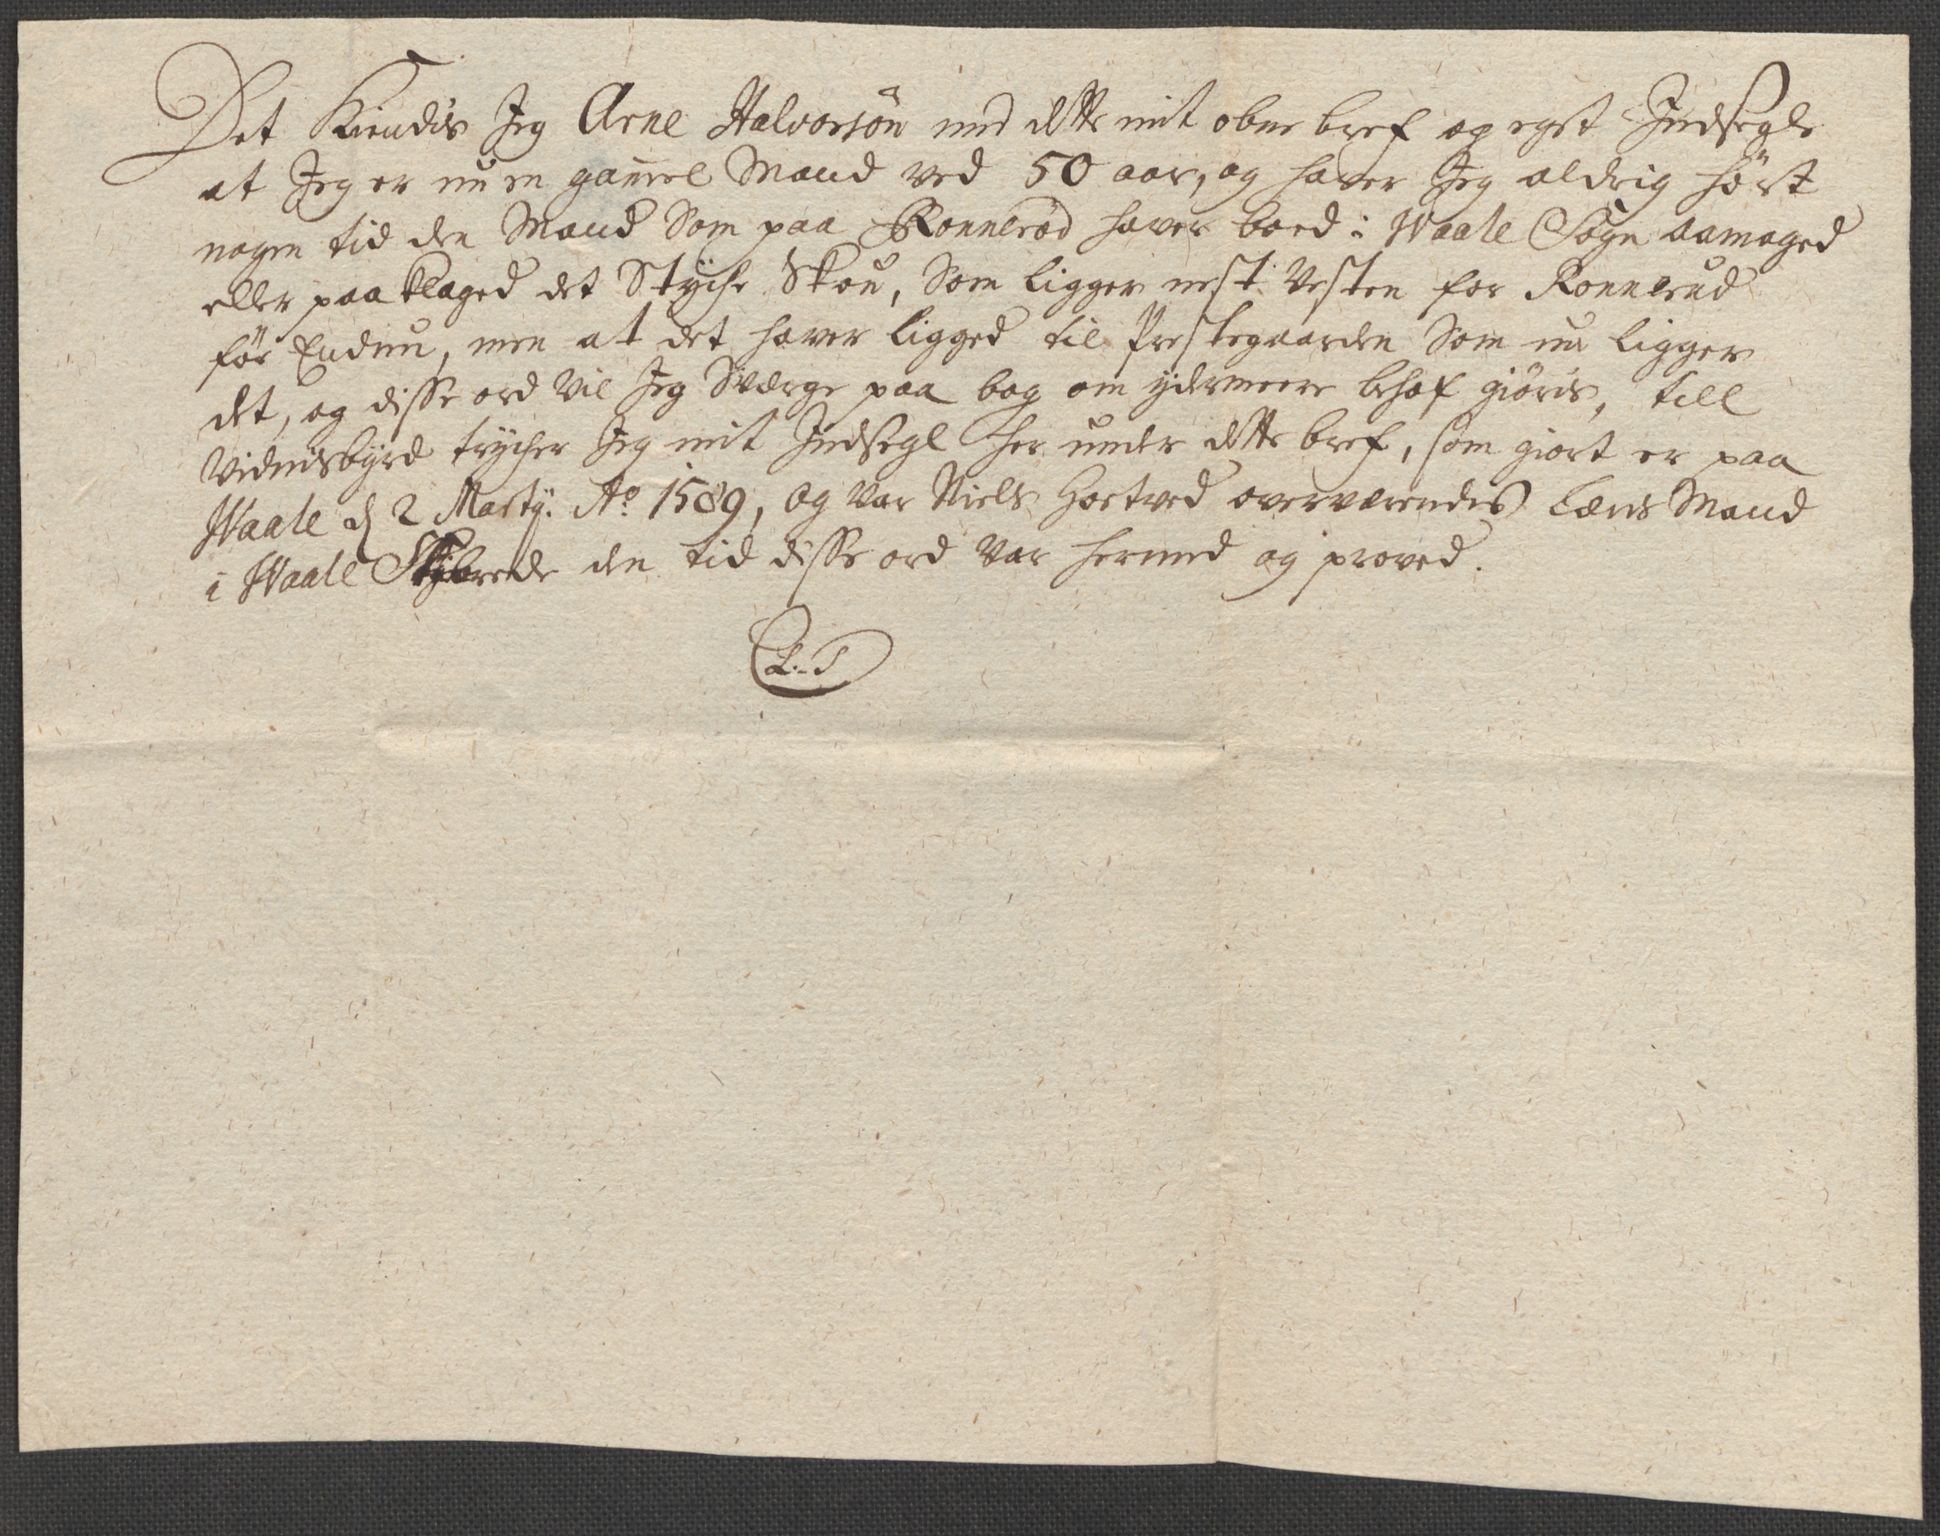 Det Kiendis Jeg Arne Halvorsön med dette mit obne bref og egst Indsegle
at Jeg er nu en gam̄el Mand ved 50 aar, og haver Jeg aldrig hört
nogen tid den Mand Som paa Ronneröd haver boed i Waale Sogn aamaged
eller paaklaged det Stÿche Skou, Som ligger nest Vesten for Ronnerud
för Endnu, men at det haver ligged til Prestegaarden Som nu ligger
det, og disse ord Vil Jeg Sværge paa bog om ÿdermeere behof giöris, till
Vidnisbÿrd trÿcher Jeg mit Indsegl her under dette bref, som giort er paa
Waale d 2 Martÿ. Ao 1589, og Var Niels Hortved overværendes Læns Mand
i Waale Skibrede den tid disse ord Var hermed og proved.
L. S